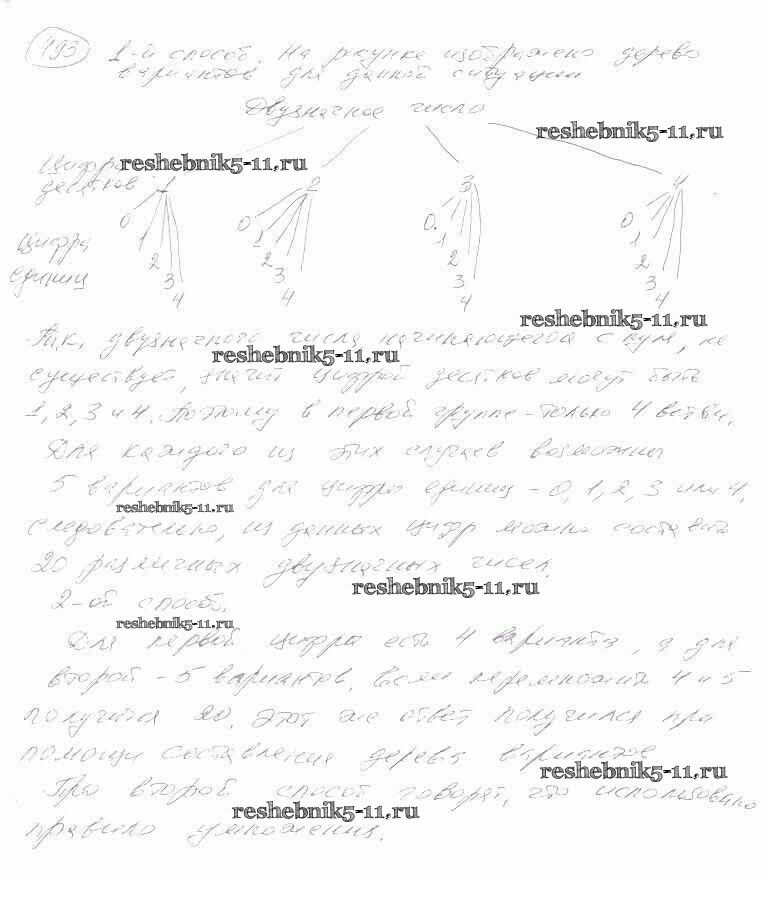 493 1-й способ. На рисунке изображено дерево
вариантов для данной ситуации
Двузначное число
reshebnik5-11.ru
Цифра reshebnik5-11.ru
десятков 1 2 3 4
0 0 0 0
Цифра 1 1 1 1
единиц 2 2 2 2
3 3 3 3
4 4 4 4
reshebnik5-11.ru
Т.к. двузначного числа начинающегося с нуля, не
reshebnik5-11.ru
существует, значит цифрой десятков могут быть
1, 2, 3 и 4. Поэтому в первой группе - только 4 ветви.
Для каждого из этих случаев возможны
5 вариантов для цифры единиц - 0, 1, 2, 3 или 4,
reshebnik5-11.ru
следовательно, из данных цифр можно составить
20 различных двузначных чисел.
reshebnik5-11.ru
2-ой способ.
reshebnik5-11.ru
Для первой цифры есть 4 варианта, а для
второй - 5 вариантов. Если перемножить 4 и 5
получится 20. Этот же ответ получился при
помощи составления дерева вариантов
reshebnik5-11.ru
Про второй способ говорят, что использовано
reshebnik5-11.ru
правило умножения.